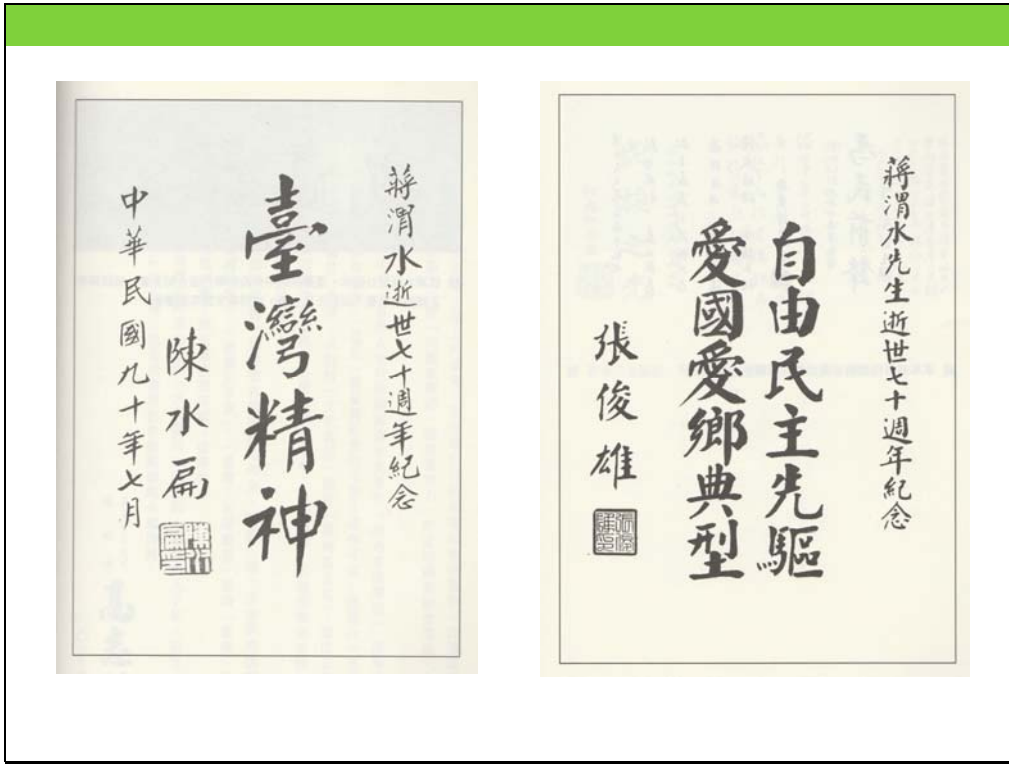 蔣渭水逝世七十週年紀念
臺灣精神
陳水扁
中華民國九十年七月
蔣渭水先生逝世七十週年紀念
自由民主先驅
愛國愛鄉典型
張俊雄